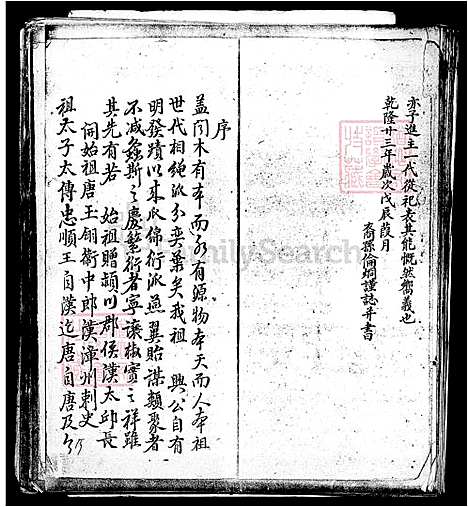 亦子進主一代從祀表其能慨然嚮義也
乾隆廿三年歲次戊辰葭月
裔孫倫炯謹誌并書
序
蓋聞木有本而水有源物本天而人本祖
世代相繩派分奕葉矣我祖 興公自有
明發蹟以來瓜綿衍派燕翼貽謀類聚者
不減螽斯之慶蕃衍者寧讓椒實之祥雖
其先有若 始祖贈潁川郡侯漢太邱長
伺始祖唐玉鈐衛中郎 漢漳州刺史
祖太子太傅忠順王自漢迄唐自唐及今
FamilySearch